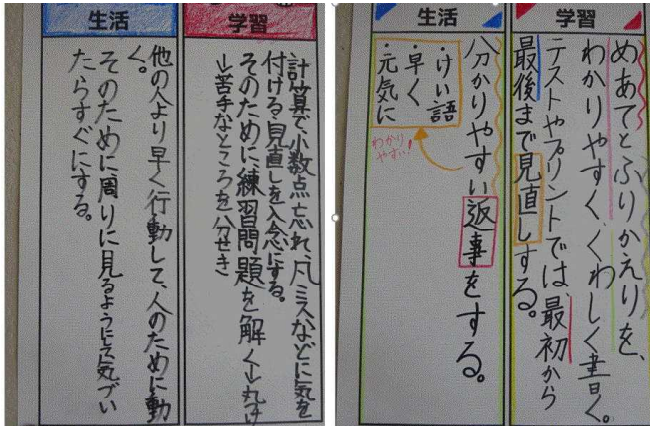 学習
計算で小数点忘れ、凡ミスなどに気を
付ける。見直しを入念にする。
そのために練習問題を解く→丸付け
→苦手なところを分せき
生活
他の人より早く行動して、人のために動
く。
そのために周りに見るようにして気づい
たらすぐにする。
学習
めあてとふりかえりを、
わかりやすく、くわしく書く。
テストやプリントでは、最初から
最後まで見直しする。
生活
分かりやすい返事をする。
・けい語
・早く
・元気に
わかり
やすい!